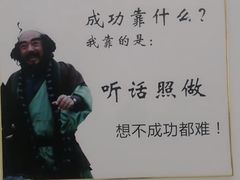 成功靠什么？
我靠的是：
听话照做
想不成功都难！